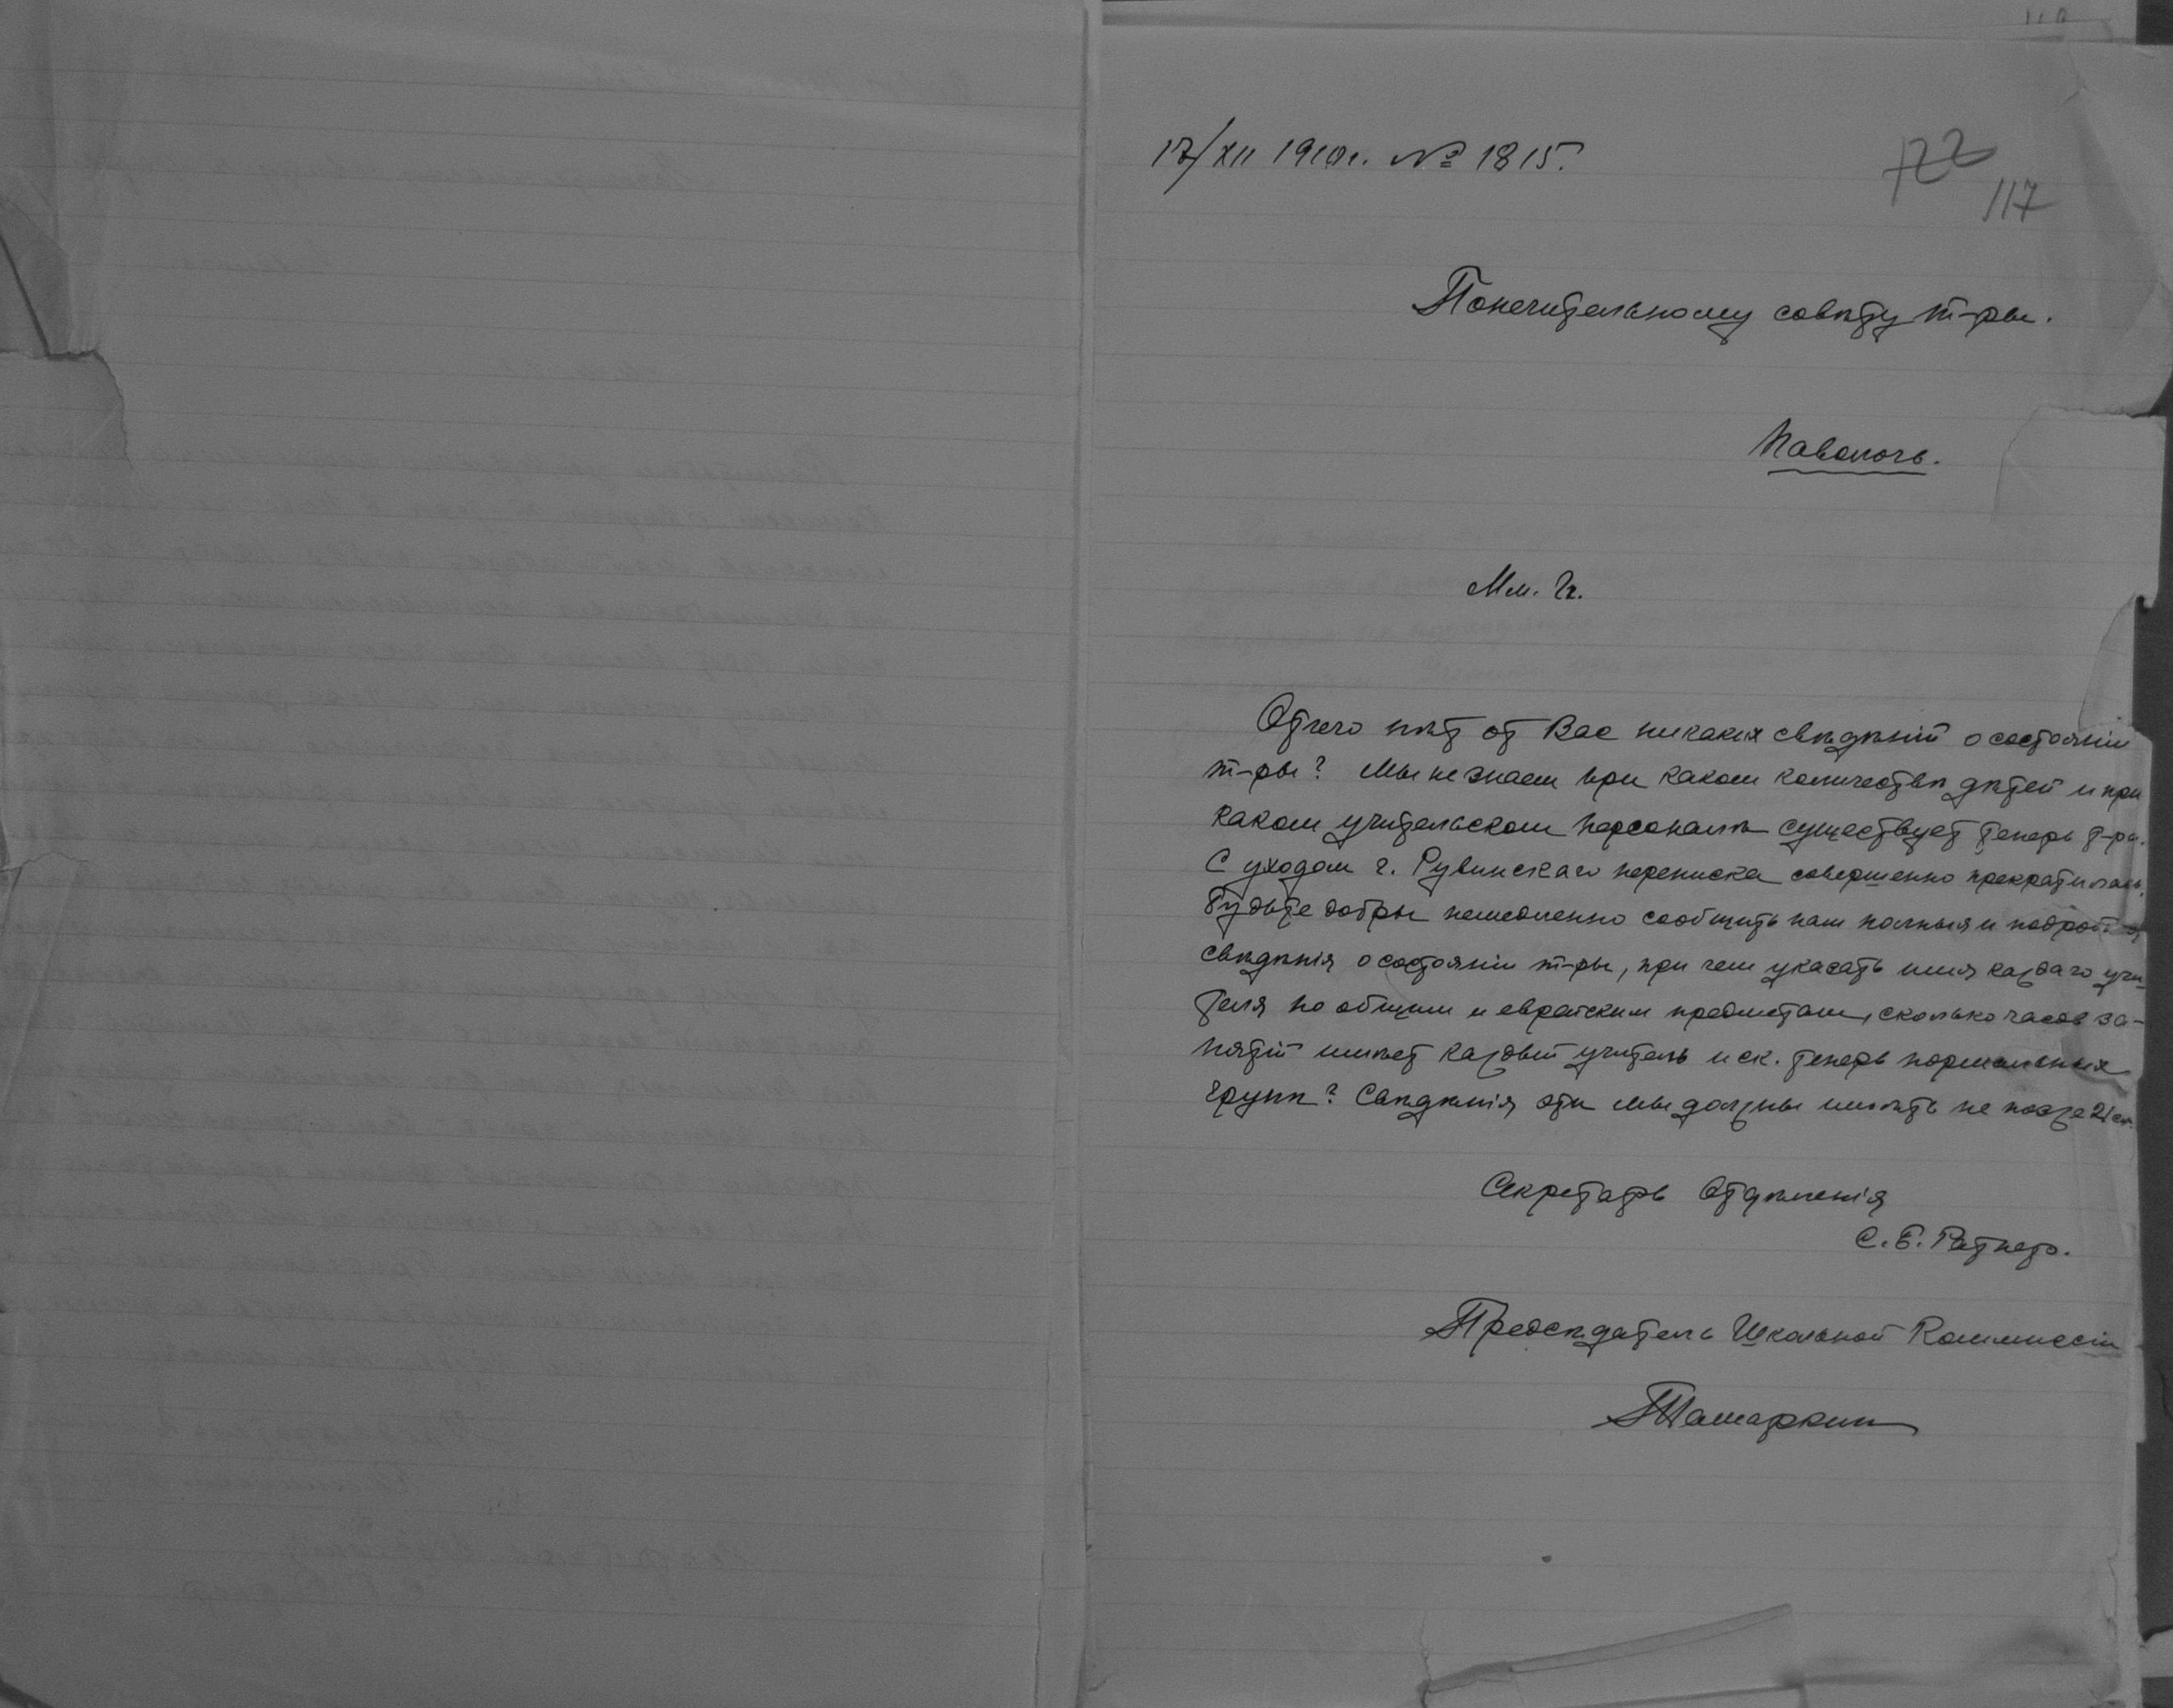 17/XII 1910 г. № 1815.
122
117
Попечительному совѣту т-ры.
Паволочь.
Мм. Гг.
Отчего нѣт от Вас никаких свѣдѣнiй о состоянiи
т-ры? Мы не знаем при каком количествѣ дѣтей и при
каком учительском персоналѣ существует теперь т-ра.
С уходом г. Рувинскаго переписка совершенно прекратилась.
Будьте добры немедленно сообщить нам полныя и подроб
свѣдѣнiя о состоянiи т-ры, при чем указать имя каждаго учи-
теля по общим и еврейским предметам, сколько часов за-
нятiй имѣет каждый учитель и ск. теперь нормальных
групп? Свѣдѣнiя эти мы должны имѣть не позже 21
Секретарь Отдѣленiя
С. Б. Ратнер.
Предсѣдатель Школьной Коммиссiи